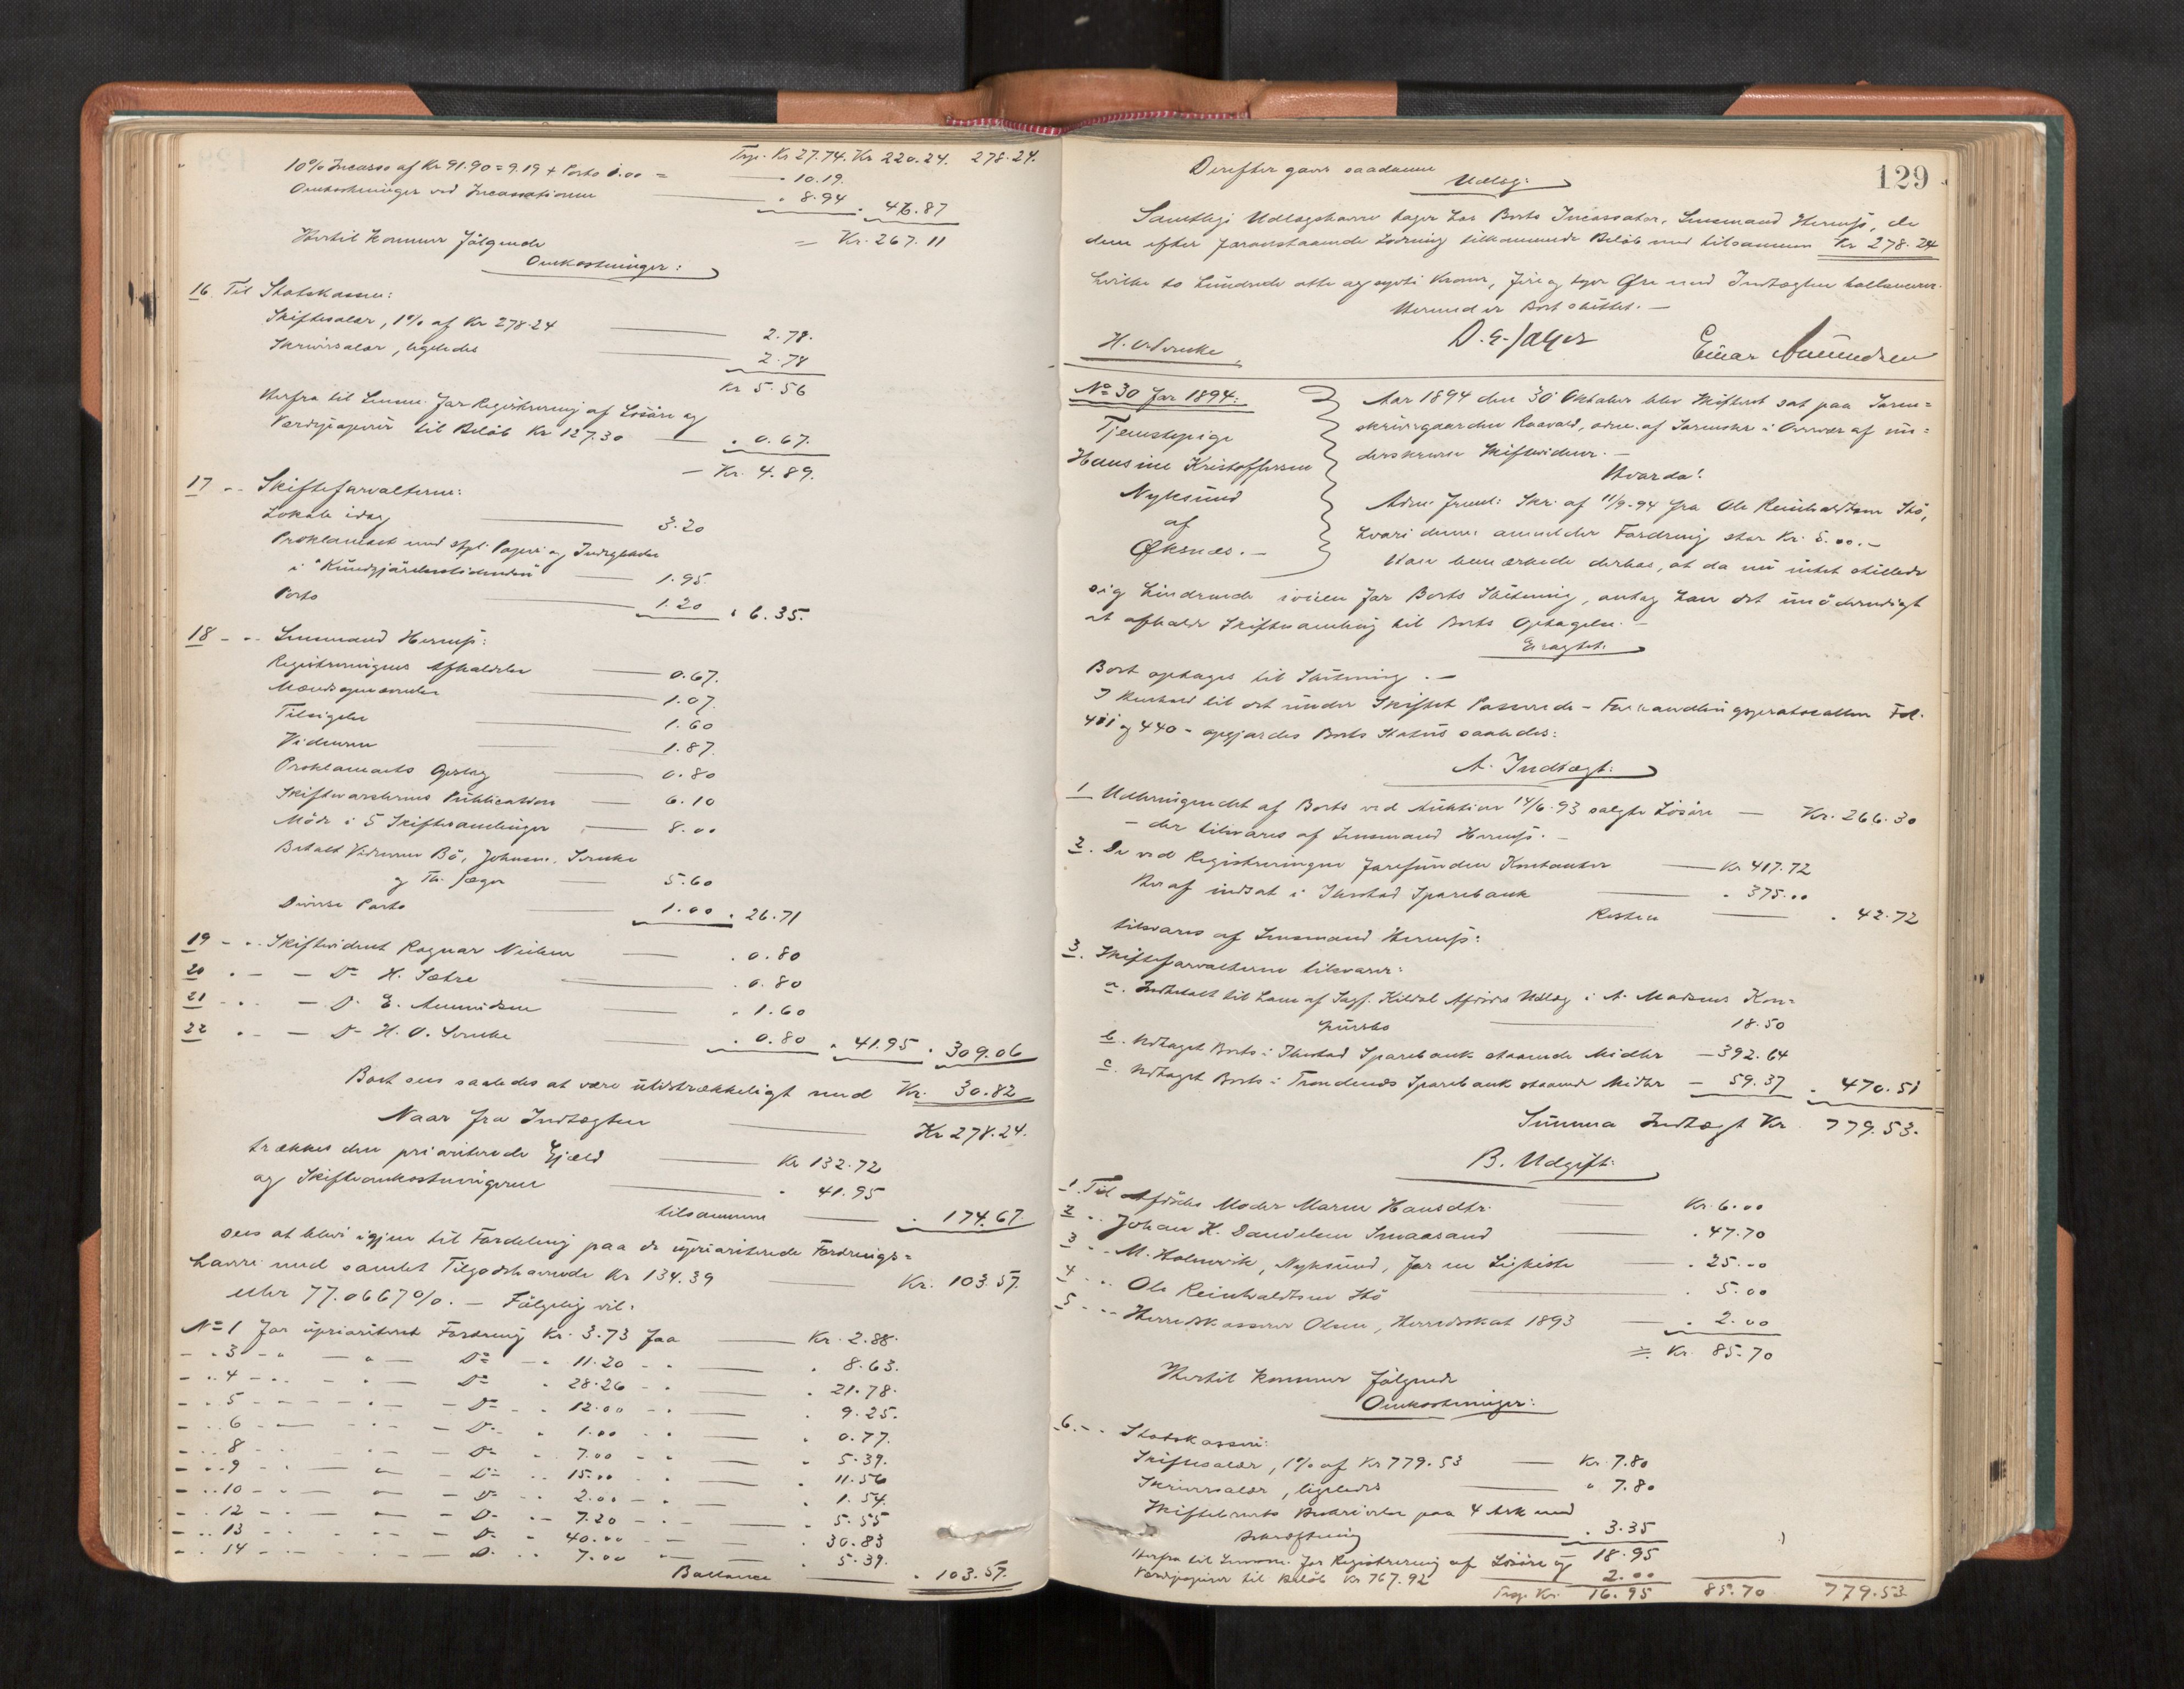 Trsp. Kr 27.74. Kr 220.24. 278.24.
10% Incasso af Kr 91.90 = 9.19 + Porto 1.00 = " 10.19.
Omkostninger ved Incassationen " 8.94 " 46.87
= Kr. 267.11
Hertil kommer følgende
Omkostninger:
16. Til Statskassen:
Skiftesalær, 1% af Kr 278.24 2.78.
Skriversalær, ligeledes 2.78
Kr 5.56
Herfra til Lensm. for Registrering af Løsøre og
Værdipapirer til Beløb Kr 127.30 " 0.67.
- Kr. 4.89.
17 - - Skifteforvalteren:
Lokale idag 3.20
Proklamaet med stpl. Papir og Indrykkelse
i "Kundgjørelsestidenden" 1.95
Porto 1.20 " 6.35.
18 - - Lensmand
Registreringens Afholdelse 0.67.
1.07.
Tilsigelse 1.60
Vidnerne 1.87.
Proklamaets Opslag 0.80
Publication 6.10
Møde i 5 Skiftesamlinger 8.00
Betalt Vidnerne Bö, Johnsen,
og Th. Jæger 5.60
Diverse Porto 1.00 " 26.71
19 - - Skiftevidnet Ragnar Nielsen " 0.80
20 - - Do H. Sætre " 0.80
21 - - Do E. Amundsen " 1.60
22 - - Do H. O. " 0.80 " 41.95 " 309.06
Boet sees saaledes at være utilstrækkeligt med Kr. 30.82
Naar fra Indtægten Kr 278.24.
trækkes den prioriterede Gjæld Kr 132.72
og Skifteomkostningerne " 41.95
tilsammen " 174.67
sees at blive igjen til Fordeling paa de uprioriterede Fordrings=
havere med samlet Tilgodehavende Kr 134.39 Kr. 103.57.
eller 77.0667%. - Følgelig vil:
No 1 for uprioriteret Fordring Kr. 3.73 faa Kr. 2.88.
- " 3 - " - " - Do - " 11.20 - " 8.63.
- " 4 - " - " - Do " 28.26 - " 21.78.
- " 5 - - - " - Do - " 12.00 - " 9.25.
- " 6 - - - - Do " 1.00 " 0.77.
- " 8 - - " - Do " 7.00 - " 5.39.
- " 9 - - " - Do " 15.00 - " 11.56
- " 10 - - " - Do " 2.00 - " 1.54.
- " 12 - - " - Do - " 7.20 - " 5.55
- " 13 - - - Do - " 40.00 - " 30.83
- " 14 - - - Do " 7.00 " 5.39.
Ballance " 103.57.
129
Derefter gaves saadanne
Udlæg:
Samtlige Udlægshavere tager hos Boets Incassator, Lensmand de
dem efter foranstaaende Lodning tilkommende Beløb med tilsammen Kr 278.24
hvilke to Hundrede otte og sytti Kroner, fire og tyve Øre med Indtægten ballancerer.
Hermed er Boet sluttet. -
D. E. Jæger
H. O. Einar Amundsen
No 30 for 1894:
Tjenestepige
Hansine Kristoffersen
Nyksund
af
Øksnæs. -
Aar 1894 den 30 Oktober blev Skifteret sat paa Soren=
skrivergaarden Raavold, adm. af Sorenskr. i Overvær af un=
derskrevne Skiftevidner. -
Hvorda!
Adm. freml: Skr. af 11/9-94 fra Ole Reinholdtsen Stö,
hvori denne anmelder Fordring stor Kr. 5.00. -
Han bemærkede derhos, at da nu intet stillede
sig hindrende iveien for Boets Slutning, antog han det unødvendigt
at afholde Skiftesamling til Boets Optagelse. -
Eragtet:
Boet optages til Slutning. -
I Henhold til det under Skiftet Passerede - Forhandlingsprotocollen Fol.
411 og 440 - opgjordes Boets Status saaledes:
A. Indtægt:
1 Udbringendet af Boets ved Auktion 14/6-93 solgte Løsøre - Kr. 266.30
- der tilsvares af Lensmand
2. De ved Registreringen forefundne Kontanter Kr 417.72
Heraf indsat i Sparebank " 375.00
Resten " 42.72
tilsvares af Lensmand
3. Skifteforvalteren tilsvarer:
a. Indbetalt til ham af Sagf. Kildal Afdødes Udlæg i A. Madsens Kon=
kursbo 18.50
b. Udtaget Boets i Sparebank staaende Midler - 392.64
c. Udtaget Boets i Trondenæs Sparebank staaende Midler - 59.37 " 470.51
Summa Indtægt Kr 779.53.
B. Udgift:
1 Til Afdødes Moder Maren Hansdtr. Kr. 6.00
2 - - Johan K. Danielsen Smaasund " 47.70
3 - - M. Holmvik, Nyksund, for en Ligkiste " 25.00
4 - - Ole Reinholdtsen Stö " 5.00
5 - - Herredskasserer Olsen, Herredsskat 1893 " 2.00
= Kr. 85.70
Hertil kommer følgende
Omkostninger:
6. - - Statskassen:
Skiftesalær, 1% af Kr 779.53 Kr. 7.80
Skriversalær, ligeledes " 7.80
Skiftebrevets Beskrivelse paa 4 Ark med
Bekræftning " 3.35
18.95
Herfra til Lensm. for Registrering af Løsøre og
Værdipapirer til Beløb Kr 767.92 2.00
Trsp. Kr. 16.95 85.70 779.53